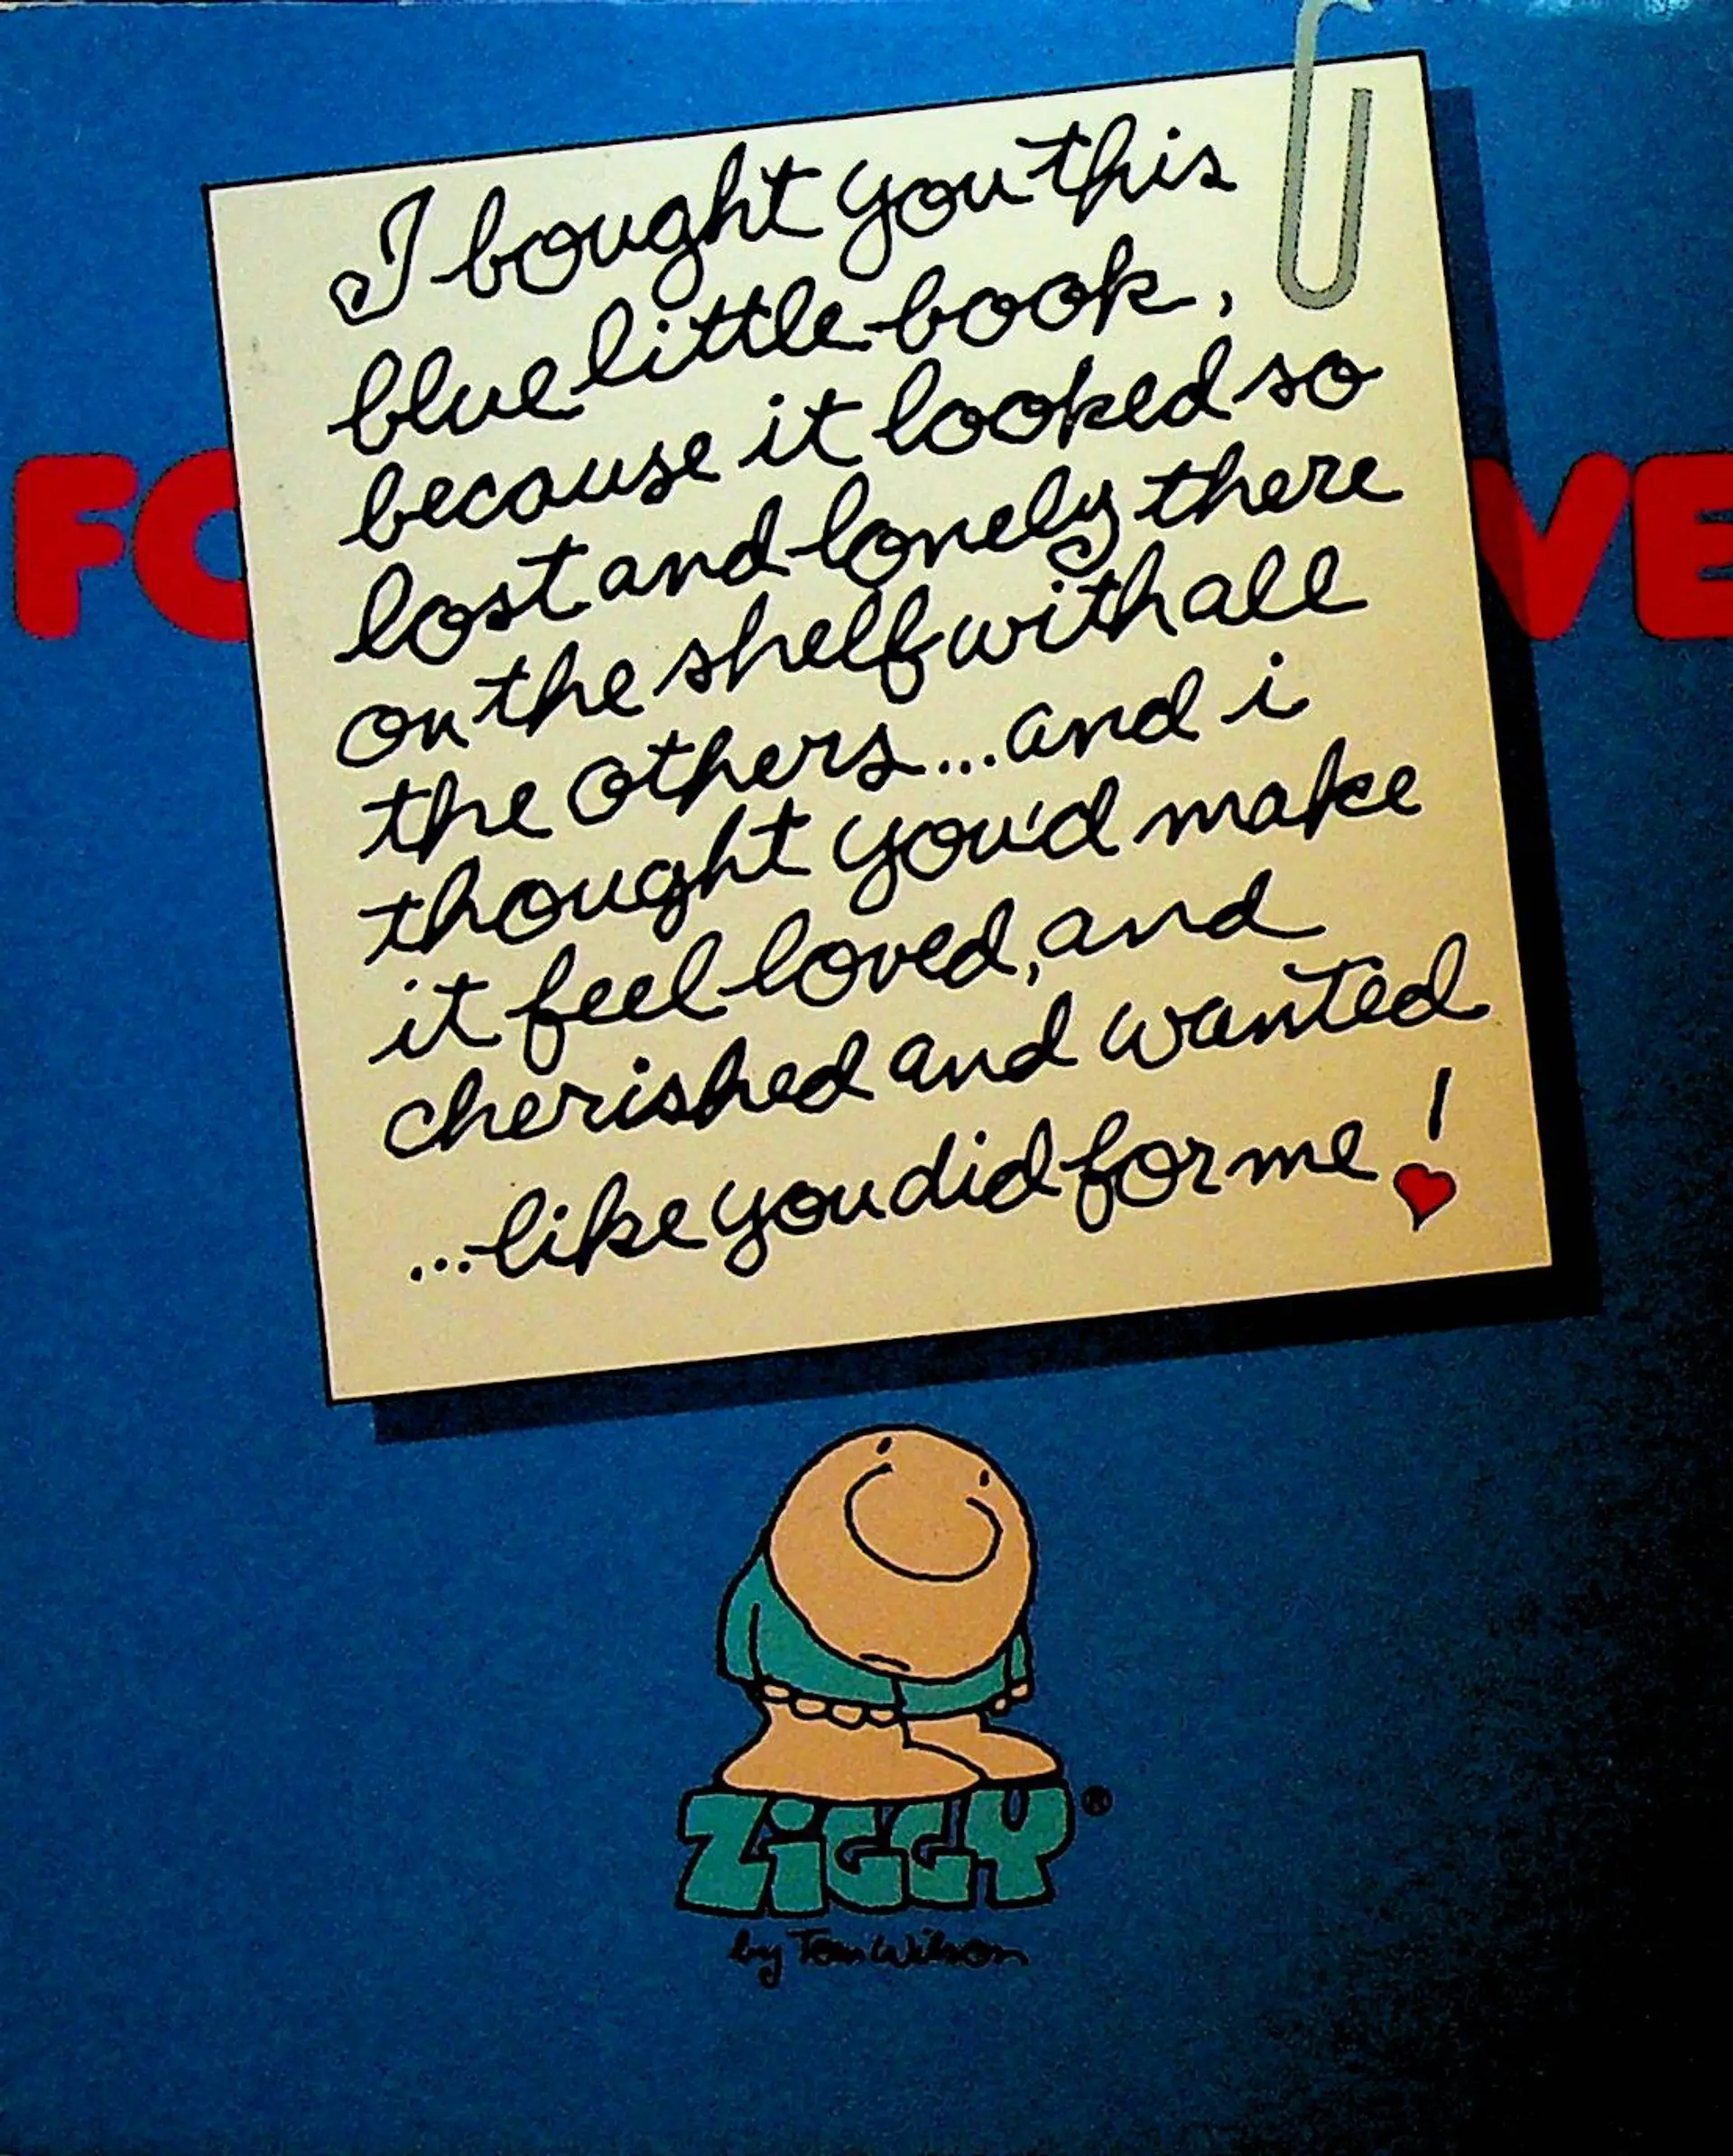 I bought you this
blue little book,
because it looked so
lost and lonely there
on the shelf with all
the others...and i
thought you'd make
it feel loved, and
cherished and wanted
...like you did for me!
FO
VE
ZiGGY®
by Tom Wilson